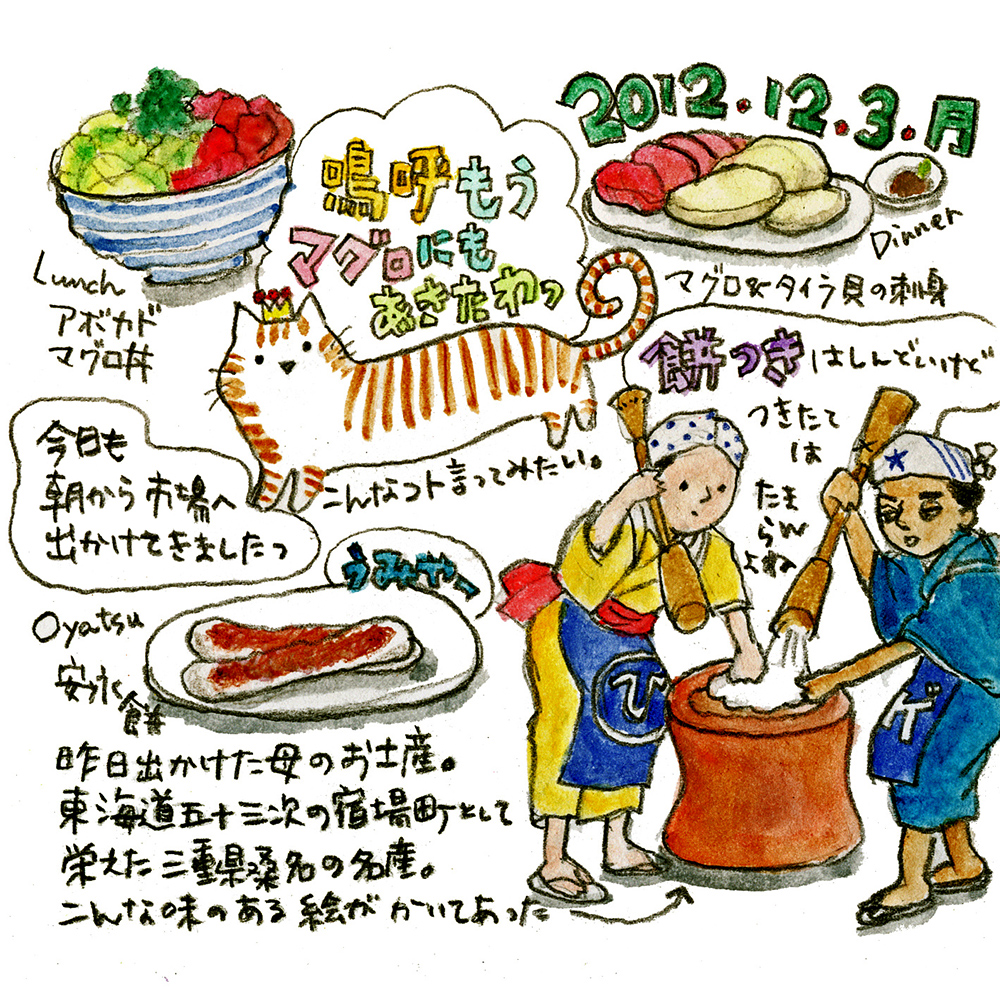 2012.12.3.月
嗚呼もう
マグロにも
あきたわっ
Lunch
アボカド
マグロ丼
Dinner
マグロ&タイラ貝の刺身
こんなコト言ってみたい。
今日も
朝から市場へ
出かけてきましたっ
餅つきはしんどいけど
つきたて
は
たま
らん
よね
うみゃー
Oyatsu
安永
餅
ひ
ゲ
昨日出かけた母のお土産。
東海道五十三次の宿場町として
栄えた三重県桑名の名産。
こんな味のある絵がかいてあった